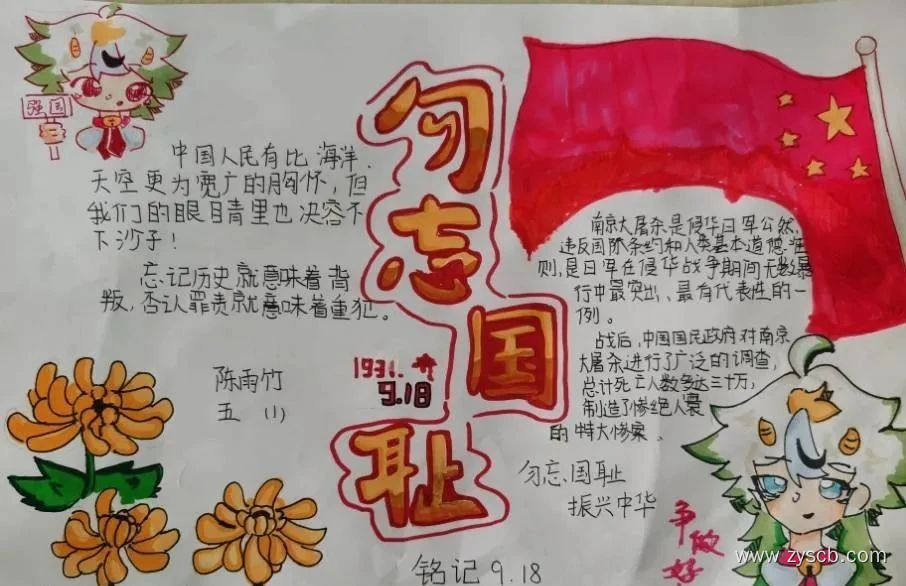 强国
中国人民有比海洋、
天空更为宽广的胸怀，但
我们的眼睛里也决容不
下沙子！
忘记历史就意味着背
叛，否认罪责就意味着重犯。
陈雨竹
五（1）
勿忘国耻
1931.
9.18
南京大屠杀是侵华日军公然
违反国际条约和人类基本道德准
则，是日军在侵华战争期间无数暴
行中最突出、最有代表性的一
例。
战后，中国国民政府对南京
大屠杀进行了广泛的调查，
总计死亡人数多达三十万，
制造了惨绝人寰
的特大惨案。
勿忘国耻
振兴中华
争做好
铭记9.18
www.zyscb.com